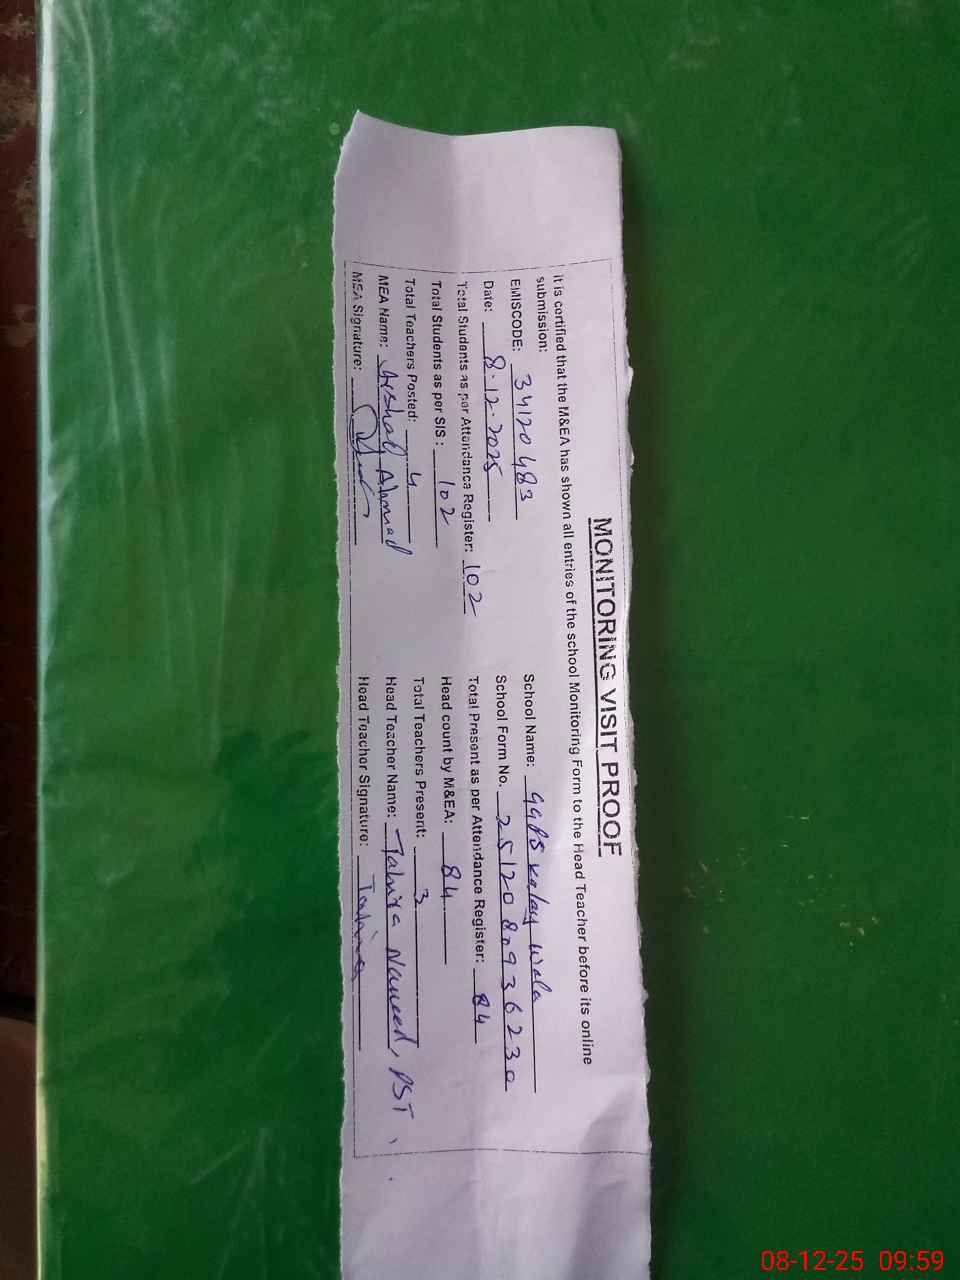 MONITORING VISIT PROOF
It is certified that the M&EA has shown all entries of the school Monitoring Form to the Head Teacher before its online
submission:
EMISCODE: 34120483 School Name: GGPS Kalay Wala
Date: 8.12.2025 School Form No. 2512080936230
Total Students as per Attendance Register: 102 Total Present as per Attendance Register: 84
Total Students as per SIS: 102 Head count by M&EA: 84
Total Teachers Posted: 4 Total Teachers Present: 3
MEA Name: Arshad Ahmad Head Teacher Name: Tahira Naveed, PST
MEA Signature: Head Teacher Signature: Tahira
08-12-25 09:59